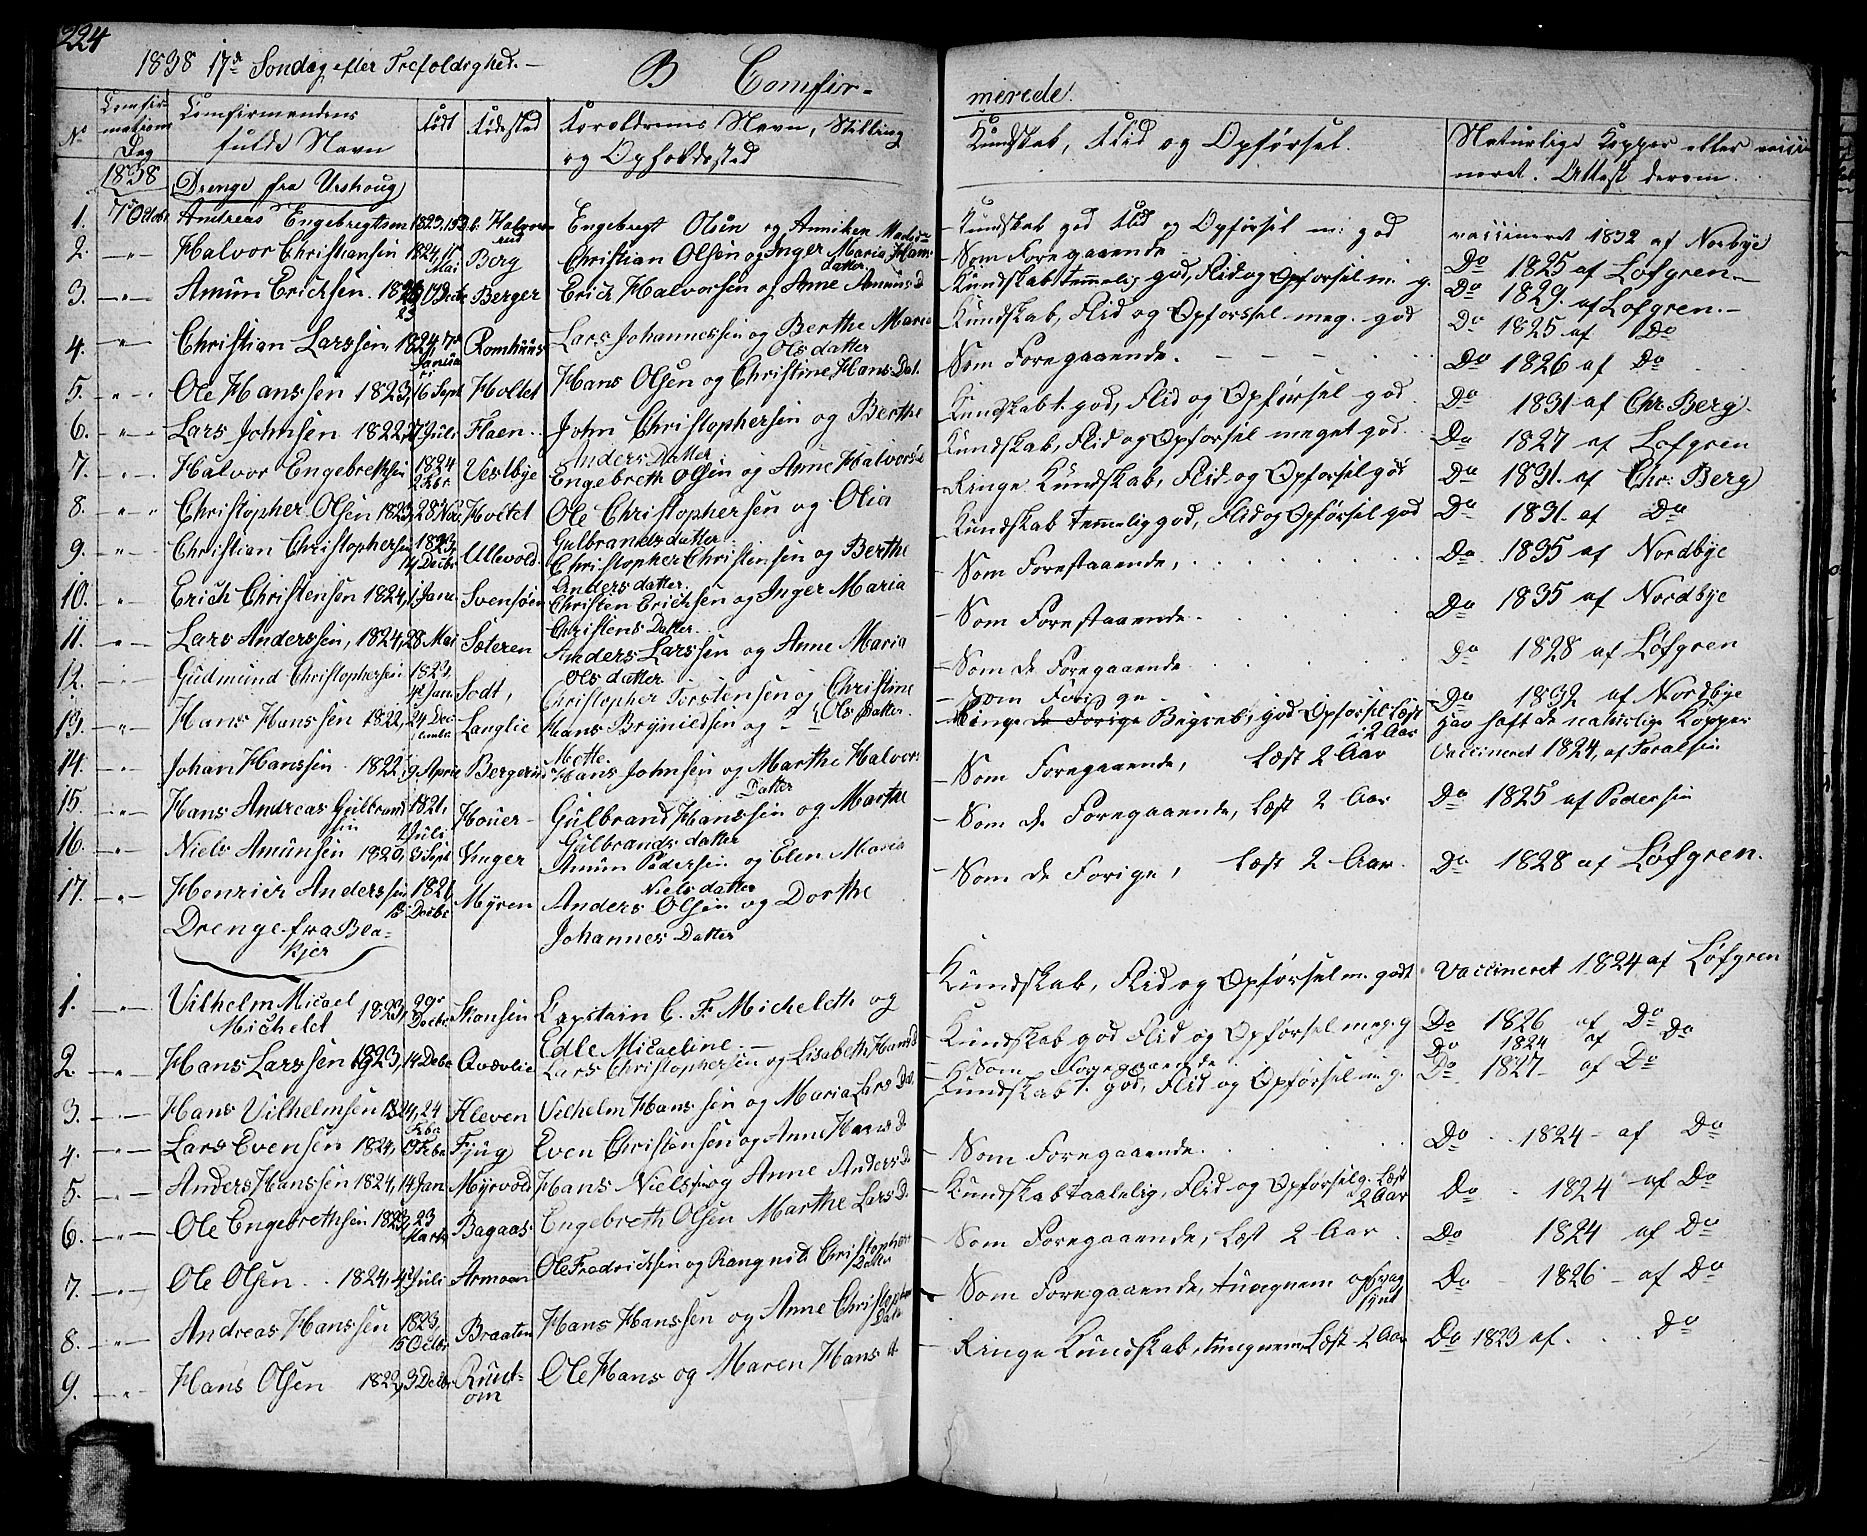 224
1838 17de Søndag efter Trefoldighed. —
B Comfir-
merede.
No
Comfir-
mations
Dag
Comfirmandens
fulde Navn
Født
Fødested
Forældrenes Navn, Stilling
og Opholdssted
Kundskab, Flid og Opførsel.
Naturlige Kopper eller vacci-
neret. Attest derom.
1838
Drenge fra Urskoug
1. 7de Octobr. Andreas Engebregtsen 1823, Halvors-
rud Engebregt Olsen og Anniken - Kundskab god Flid og Opførsel m: god vaccineret 1832 af Norbye
2. —"— Halvor Christiansen 1824, Mai Berg Christian Olsen og Inger Maria Hans
datter - Som Foregaaende Do 1825 af Løfgren. -
3. —"— Amun Erichsen. Berger Erich Halvorsen og Anne Amunds D - Kundskab temmelig god, Flid og Opførsel m. g. Do 1829. af Løfgren. -
4. —"— Christian Larssen 1824 Januari Romhuus Lars Johannessen og Berthe Maria
Ols datter - Kundskab, Flid og Opførsel meg. god Do 1825 af Do
5. —"— Ole Hanssen 1823, 16 Sept Holtet Hans Olsen og Christine Hans Dat. - Som Foregaaende. Do 1826 af Do
6. —"— Lars Johnsen 1822, Juli Flaen. John Christophersen og Berthe
Anders Datter - Kundskab t. god, Flid og Opførsel god. Do 1831 af Chr. Berg
7. —"— Halvor Engebrethsen 1824 Vestbye Engebreth Olsen og Anne Halvors d - Kundskab, Flid og Opførsel meget god. Do 1827 af Løfgren
8. —"— Christopher Olsen 1823, 28 Nov. Holtet Ole Christophersen og Olia
Gulbrandsdatter - Ringe Kundskab, Flid og Opførsel god Do 1831. af Chr: Berg
9. —"— Christian Christophersen 1823, 14 Decbr Ullevold. Christopher Christensen og Berthe
Andersdatter. - Kundskab temmelig god, Flid og Opførsel god Do 1831. af Do
10. —"— Erich Christensen 1824, 1 Janu Svensøen Christen Erichsen og Inger Maria
Christens Datter. - Som Forestaaende, Do 1835 af Nordbye
11. —"— Lars Anderssen, 1824, 28 Mai Sæteren Anders Larssen og Anne Maria
Ols datter - Som Forestaaende. Do 1835 af Nordbye
12. —"— Gudmund Christophersen 1823, Jan Sodt, Christopher Torstensen og Christine
Ols Datter. - Som de Foregaaende Do 1828 af Løfgren
13. —"— Hans Hanssen 1822, 24 December Langlie Hans Brynildsen og
Mette - Som Forige Do 1832 af Nordbye
Ringe de Forige Begreb, god Opførsel Læst
2 Aar Har haft de naturlige Kopper
14. —"— Johan Hanssen 1822, 9 April Bergerud Hans Johnsen og Marthe Halvors
Datter - Som Foregaaende, Læst 2 Aar Vaccineret 1824, af
15. —"— Hans Andreas Gulbrand
sen 1821, Juli Houer Gulbrand Hanssen og Marthe
Gulbrands datter - Som de Foregaaende, Læst 2 Aar Do 1825 af Pedersen
16. —"— Niels Amunsen 1820, Sept Unger Amun Pedersen og Elen Maria
Niels datter - Som de Forige, Læst 2 Aar. Do 1828 af Løfgren.
17. —"— Henrich Anderssen 1821, Decbr Myren Anders Olsen og Dorthe
Johannes Datter
Drenge fra Bla-
kjer
1. —"— Vilhelm Micael
Michelet 1823, 29de Decbr Skansen Capitain C. F. Micheleth og
Edle Micaeline. — Kundskab, Flid og Opførsel m. godt. Vaccineret 1824 af Løfgren
2. —"— Hans Larssen 1823, 14 Debr Qvevlie Lars Christophersen og Lisabeth Hans D Kundskab god Flid og Opførsel meg. g Do 1826 af Do
- Som Foregaaende. Do 1824 af Do
3. —"— Hans Vilhelmsen 1824, 24 Febr Kleven Vilhelm Hanssen og Maria Lars Dat. - Kundskab t. god, Flid og Opførsel m. g. Do 1827 af Do
4. —"— Lars Evensen 1824, Febr Fjug Even Christensen og Anne Hans D - Som Foregaaende. Do 1824 - af Do
5. —"— Anders Hanssen 1824, 14 Jan Myrvold Hans Nielssen og Anne Anders D - Kundskab taalelig, Flid og Opførsel g. Læst
2 Aar Do 1824 - af Do
6. —"— Ole Engebrethsen 1823, 23 Marts Bagaas Engebreth Olsen Marthe Lars D. - Som Foregaaende, Læst 2 Aar. Do 1824 af Do
7. —"— Ole Olsen 1824, 4 Juli Armoen Ole Fredrichsen og Rangnild Christopher
Datter - Som Foregaaende, tungnem og svag
synt Do 1826 - af Do
8. —"— Andreas Hanssen 1823, 15 Octbr Braaten Hans Hanssen og Anne Christopher
Datt - Ringe Kundskab, tungnem, Læst 2 Aar Do 1823 af. Do
9. —"— Hans Olsen 1822, 3 Decbr Ruud-
om Ole Hans og Maren Hans d